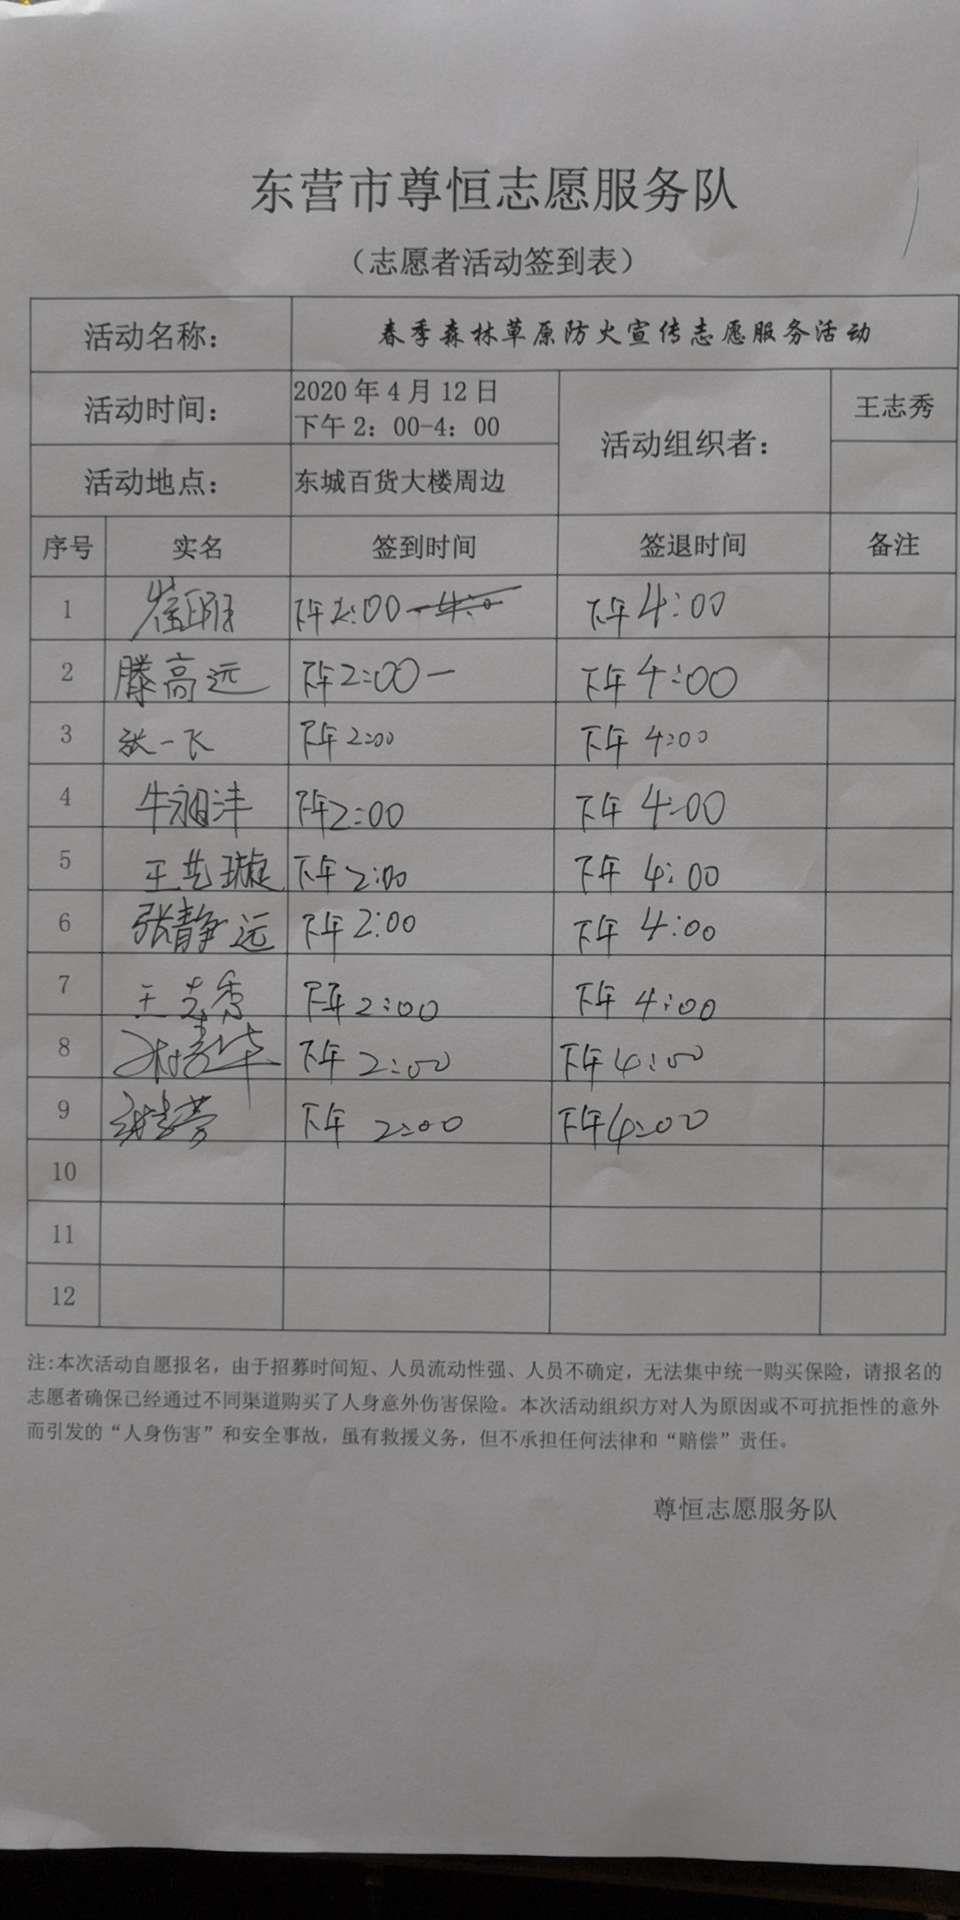 东营市尊恒志愿服务队
（志愿者活动签到表）
活动名称： 春季森林草原防火宣传志愿服务活动
活动时间： 2020年4月12日 下午2：00-4：00 活动组织者： 王志秀
活动地点： 东城百货大楼周边
序号 实名 签到时间 签退时间 备注
1 下午2:00 下午4:00
2 滕高远 下午2:00— 下午4:00
3 张一飞 下午2:00 下午4:00
4 下午2:00 下午4:00
5 王艺璇 下午2:00 下午4:00
6 张静远 下午2:00 下午4:00
7 王志秀 下午2:00 下午4:00
8 下午2:00 下午4:00
9 下午2:00 下午4:00
10
11
12
注:本次活动自愿报名，由于招募时间短、人员流动性强、人员不确定，无法集中统一购买保险，请报名的
志愿者确保已经通过不同渠道购买了人身意外伤害保险。本次活动组织方对人为原因或不可抗拒性的意外
而引发的“人身伤害”和安全事故，虽有救援义务，但不承担任何法律和“赔偿”责任。
尊恒志愿服务队